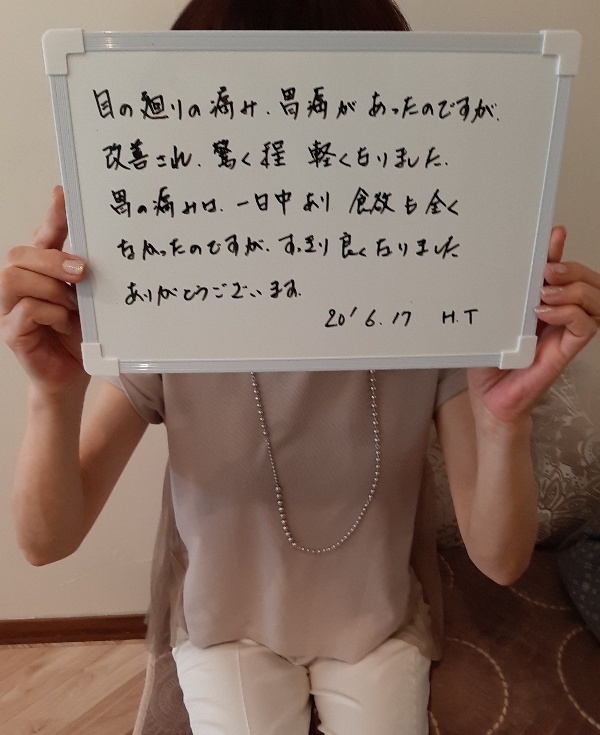 目の廻りの痛み、胃痛があったのですが、
改善され、驚く程 軽くなりました、
胃の痛みは、一日中あり 食欲も全く
なかったのですが、すっきり良くなりました
ありがとうございます。
20' 6.17 H.T